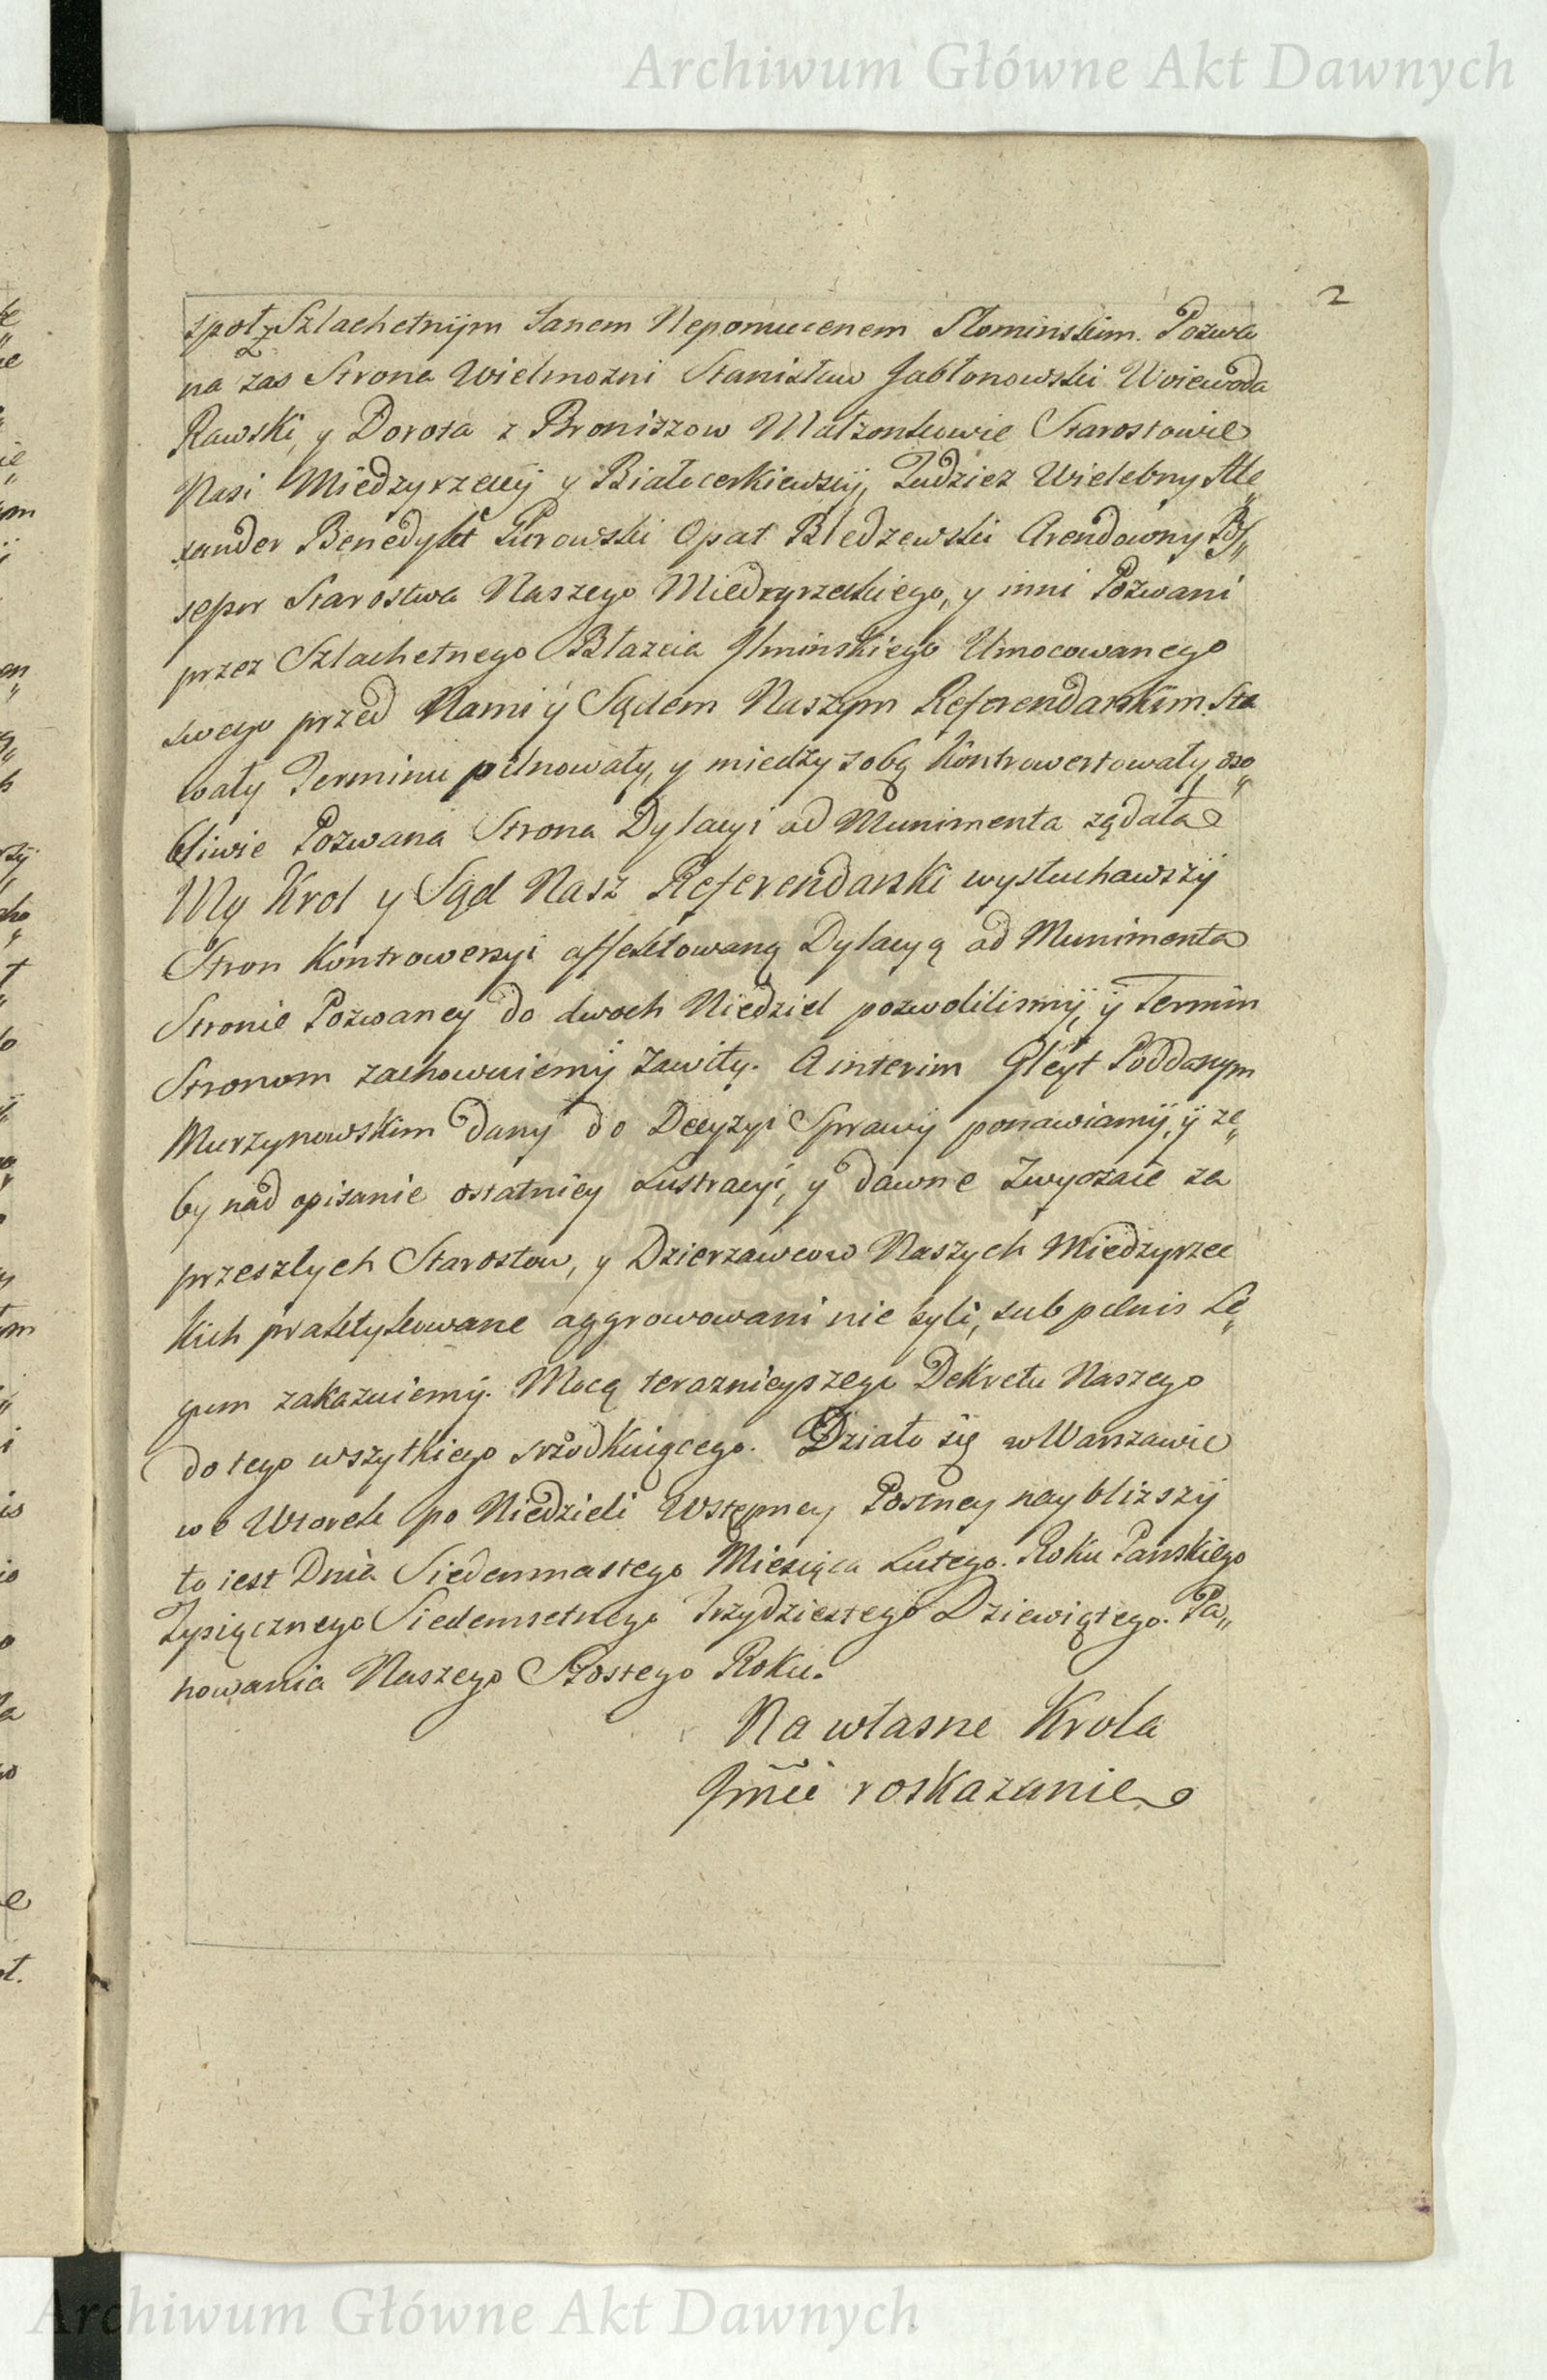 Archiwum Główne Akt Dawnych
2
społ z Szlachetnijm Janem Nepomucenem Słominskim. Pozwa
na zas Strona Wielmozni Stanisław Jabłonowski Woiewoda
Rawski, y Dorota z Broniszow Małzonkowie Starostowie
Nasi Miedzyrzeccÿ y Białocerkiewscÿ, Tudziez Wielebny Ale„
xander Benedykt Gurowski Opat Bledzewski Arendowny Pos„
sessor Starostwa Naszego Miedzyrzeckiego, y inni Pozwani
przez Szlachetnego Błazeia Jłminskiego Umocowanego
swego przed Nami ÿ Sądem Naszym Referendarskim. Sta
wały Terminu pilnowały, y miedzy sobą Kontrowertowały, oso„
bliwie Pozwana Strona Dylacyi ad Munimenta ządała
My Krol y Sąd Nasz Referendarski wysłuchawszÿ
Stron Kontrowersyi affektowaną Dylacyą ad Munimenta
Stronie Pozwaney do dwoch Niedziel pozwolilismÿ, ÿ Termin
Stronom zachowuiemÿ Zawity. A interim Gleyt Poddanym
Murzynowskim dany do Decyzyi Sprawÿ ponawiamÿ, ÿ ze„
by nad opisanie ostatniey Lustracyi, y dawne Zwyczaie za
przeszłych Starostow, y Dzierzawcow Naszych Miedzyrzec
kich praktykowane aggrawowani nie byli, sub pænis Le„
gum zakazuiemÿ. Mocą teraznieyszego Dekretu Naszego
do tego wszytkiego srzodkuiącego. Działo się w Warszawie
we Wtorek po Niedzieli Wstępney Postney naybliższÿ
to iest Dnia Siedemnastego Miesiąca Lutego. Roku Panskiego
Tysiącznego Siedemsetnego Trzydziestego Dziewiątego. Pa„
nowania Naszego Szostego Roku.
Na własne Krola
Jmći roskazanie
Archiwum Główne Akt Dawnych